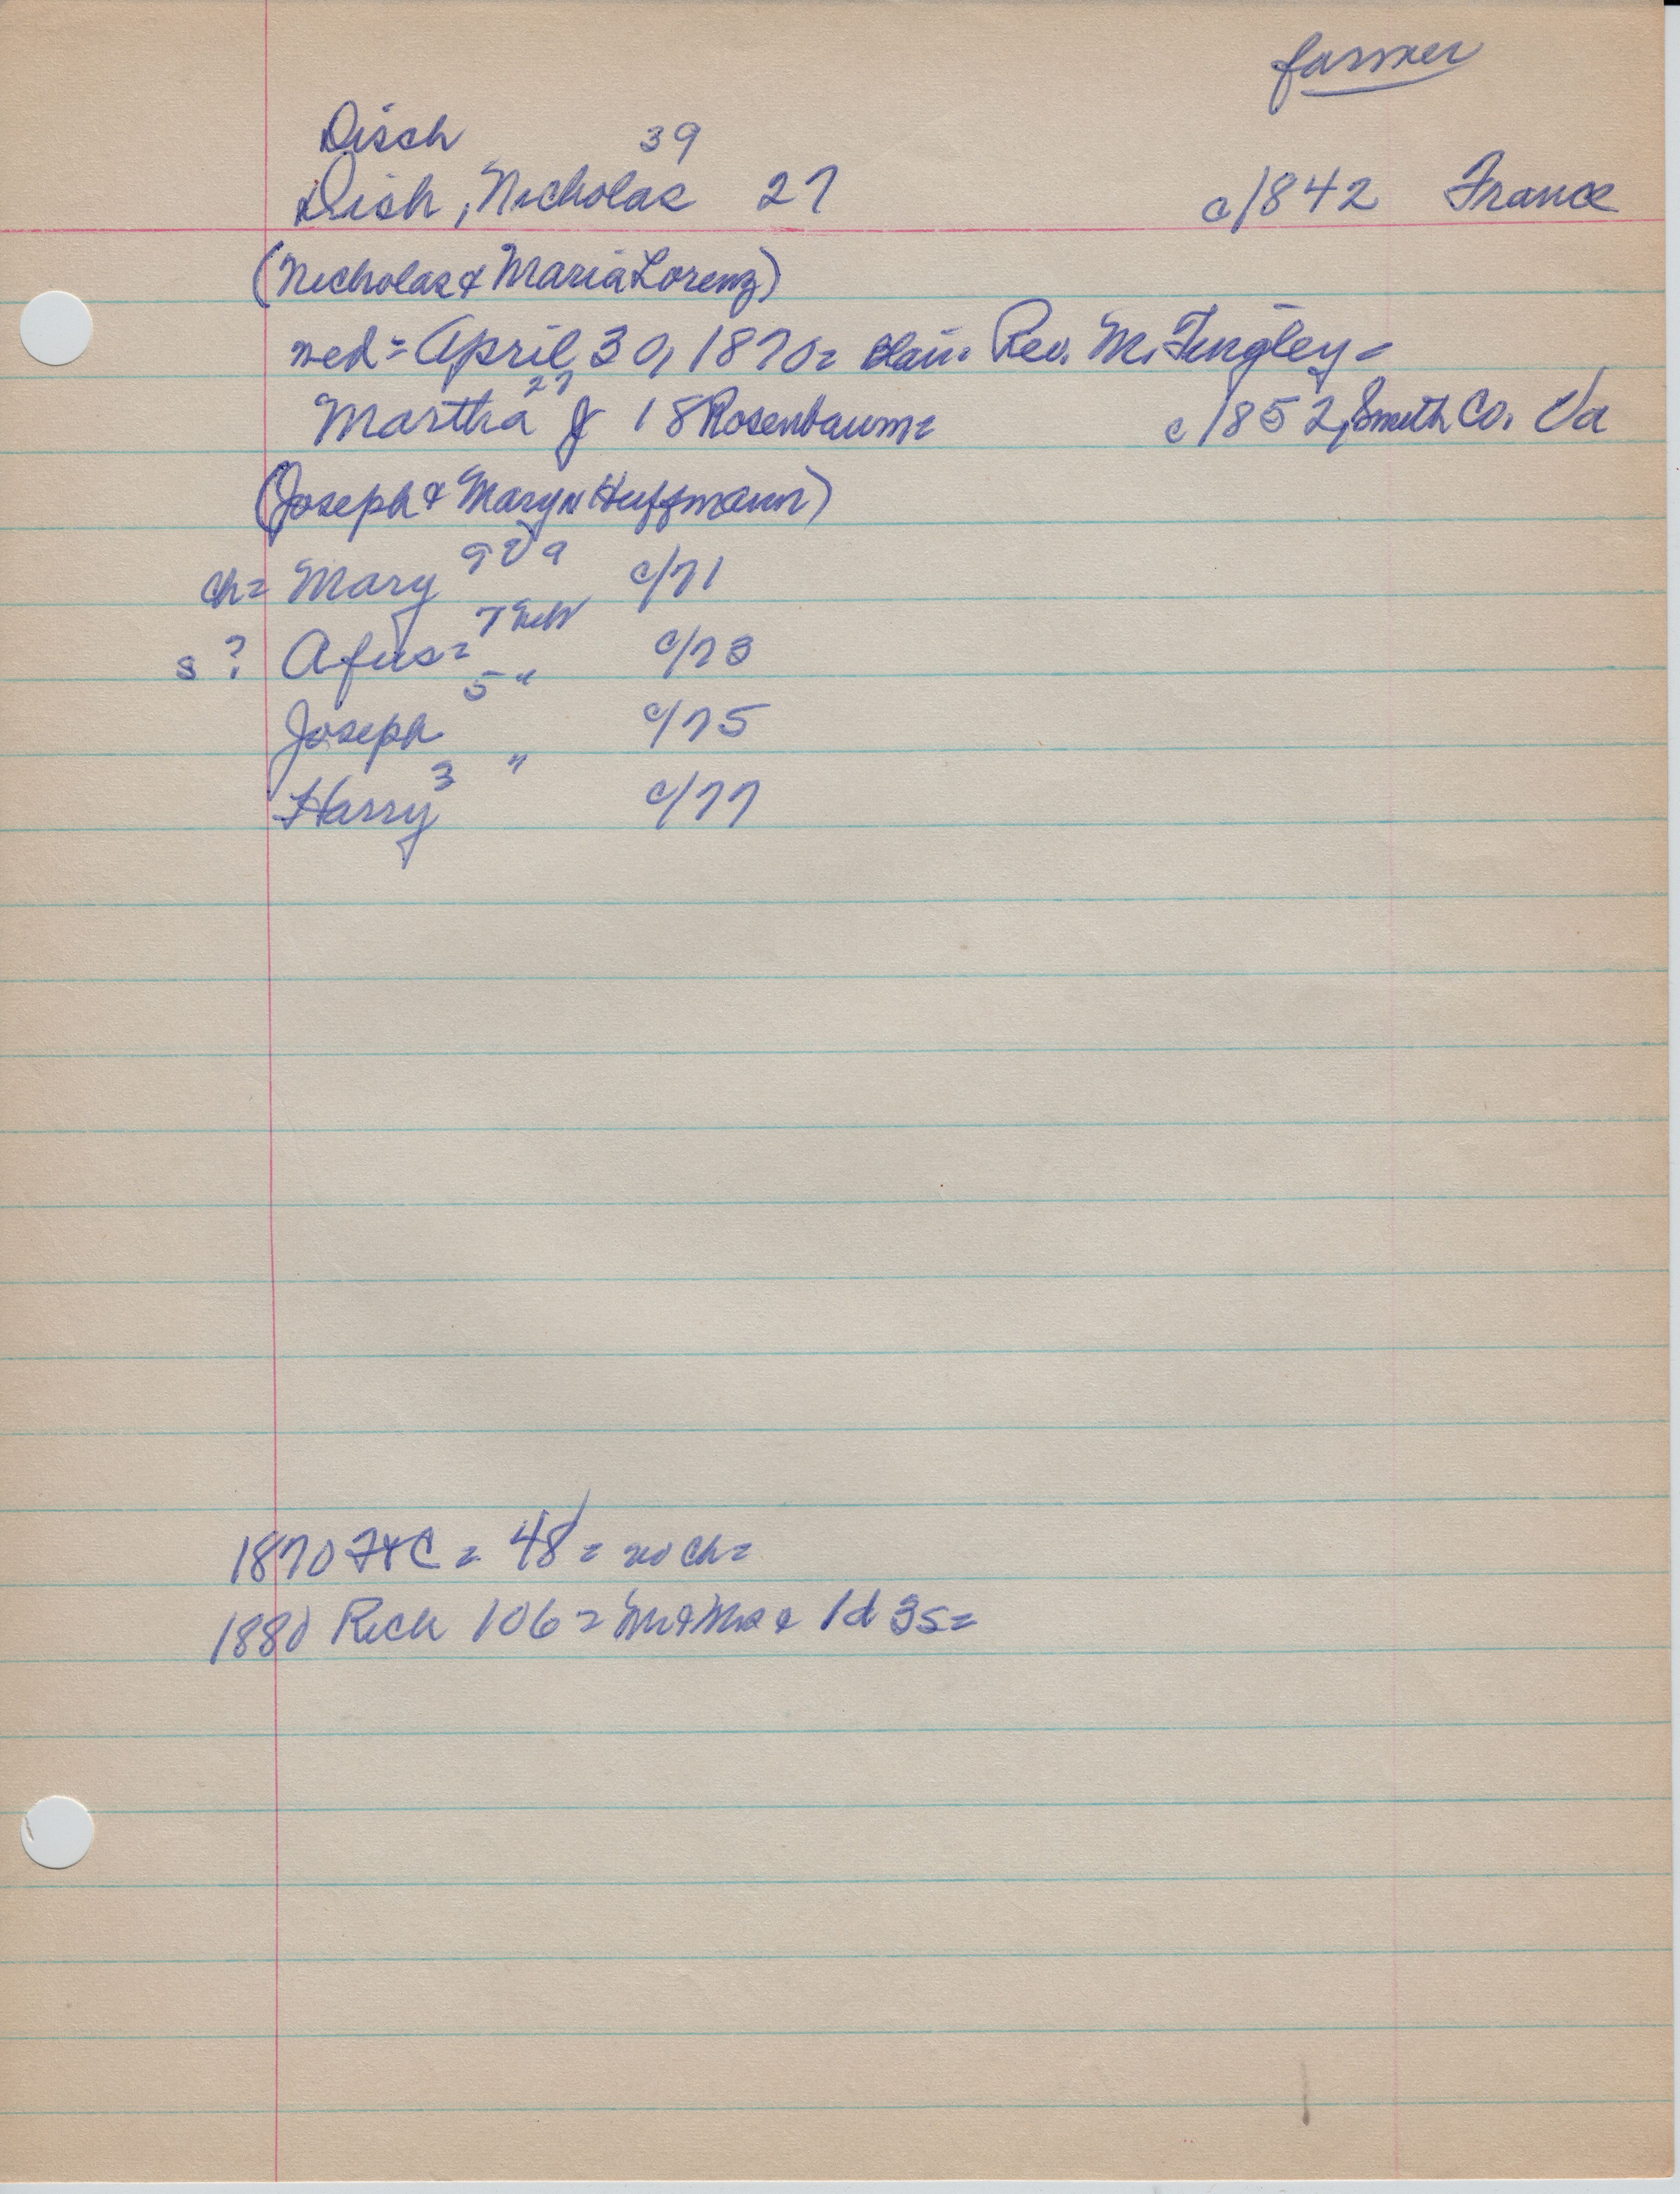 farmer
Disch 39
Dish, Nicholas 27 c/1842 France
(Nicholas & Maria Lorenz)
med = April 30, 1870 = Blair = Rev. M. Tingley =
27
Martha J 18 Rosenbaum = c/1852, Smith Co. Va
(Joseph & Mary N Huffmann)
9 Va
ch = Mary c/71
7 Neb
s ? Afus = c/73
5 "
Joseph c/75
3 "
Harry c/77
1870 F&C = 48 = no ch =
1880 Rich 106 = Mr & Mrs & 1d 3s =